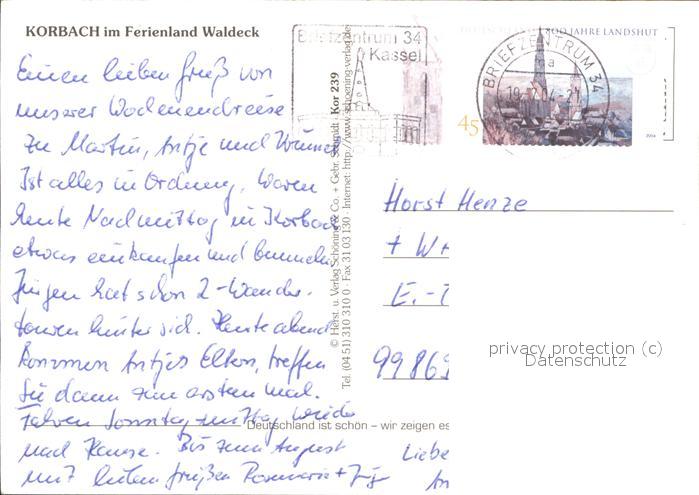 KORBACH im Ferienland Waldeck
Briefzentrum 34
Kassel
800 JAHRE LANDSHUT
BRIEFZENTRUM 34
a
45
2004
Einen lieben Gruß von
unserer Wochenendreise
zu Martin, Antje und
Ist alles in Ordnung. Waren
heute Nachmittag in Korbach
etwas einkaufen und bummeln
Jürgen hat schon 2 Wander-
touren hinter sich. Heute abend
kommen Antjes Eltern, treffen
Sie dann zum ersten mal.
Fahren Sonntag mittag wieder
nach Hause. Bis zum August
mit lieben Grüßen Rosmarie + Jürgen
© Herst. u. Verlag Schöning & Co. + Gebr. Schmidt · Kor 239
Tel. (04 51) 310 310 0 · Fax 31 03 130 · Internet: http://www.schoening-verlag.de
Horst Henze
+
E.-
9986
privacy protection (c)
Datenschutz
Deutschland ist schön – wir zeigen es
Liebe